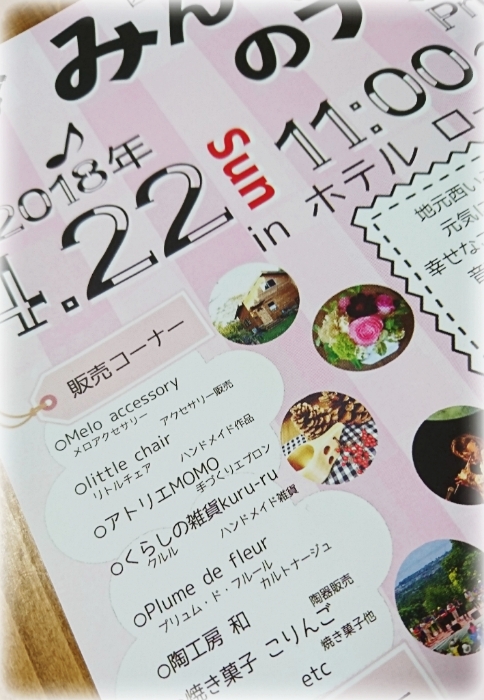 みん
のう
2018年
4.22 Sun 11:00
in ホテル ロー
地元西い
元気に
幸せな
音
販売コーナー
○Melo accessory
メロアクセサリー アクセサリー販売
○little chair
リトルチェア ハンドメイド作品
○アトリエMOMO
手づくりエプロン
○くらしの雑貨kuru-ru
クルル ハンドメイド雑貨
○Plume de fleur
プリュム・ド・フルール カルトナージュ
○陶工房 和 陶器販売
焼き菓子 こりんご 焼き菓子他
etc